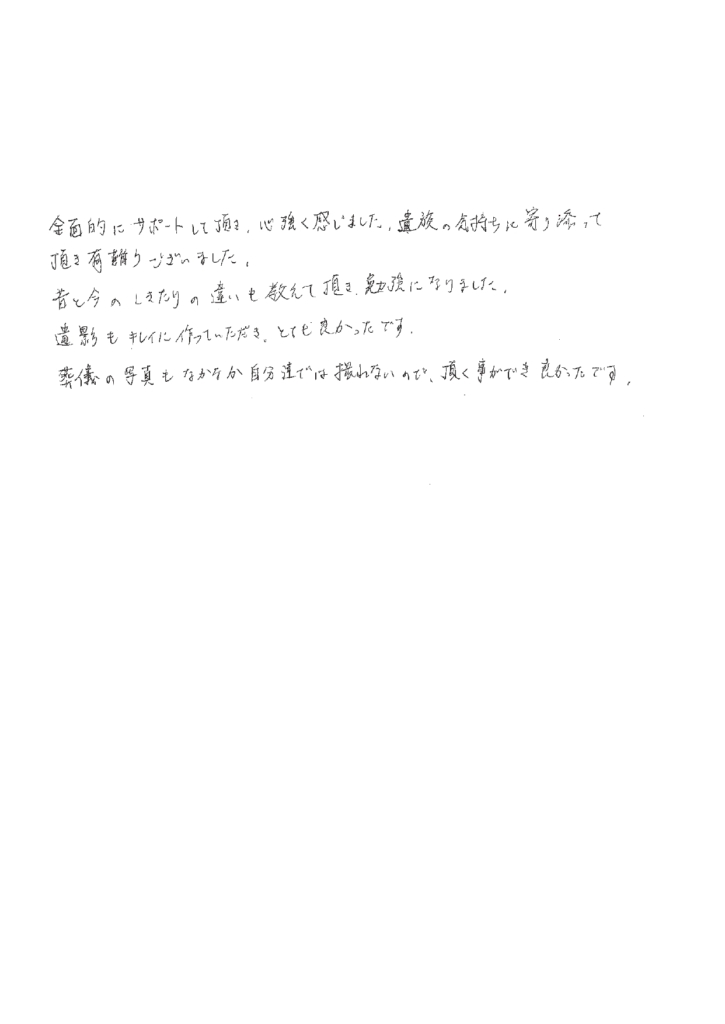 全面的にサポートして頂き、心強く感じました。遺族の気持ちに寄り添って
頂き有難うございました。
昔と今のしきたりの違いも教えて頂き、勉強になりました。
遺影もキレイに作っていただき、とても良かったです。
葬儀の写真もなかなか自分達では撮れないので、頂く事ができ良かったです。